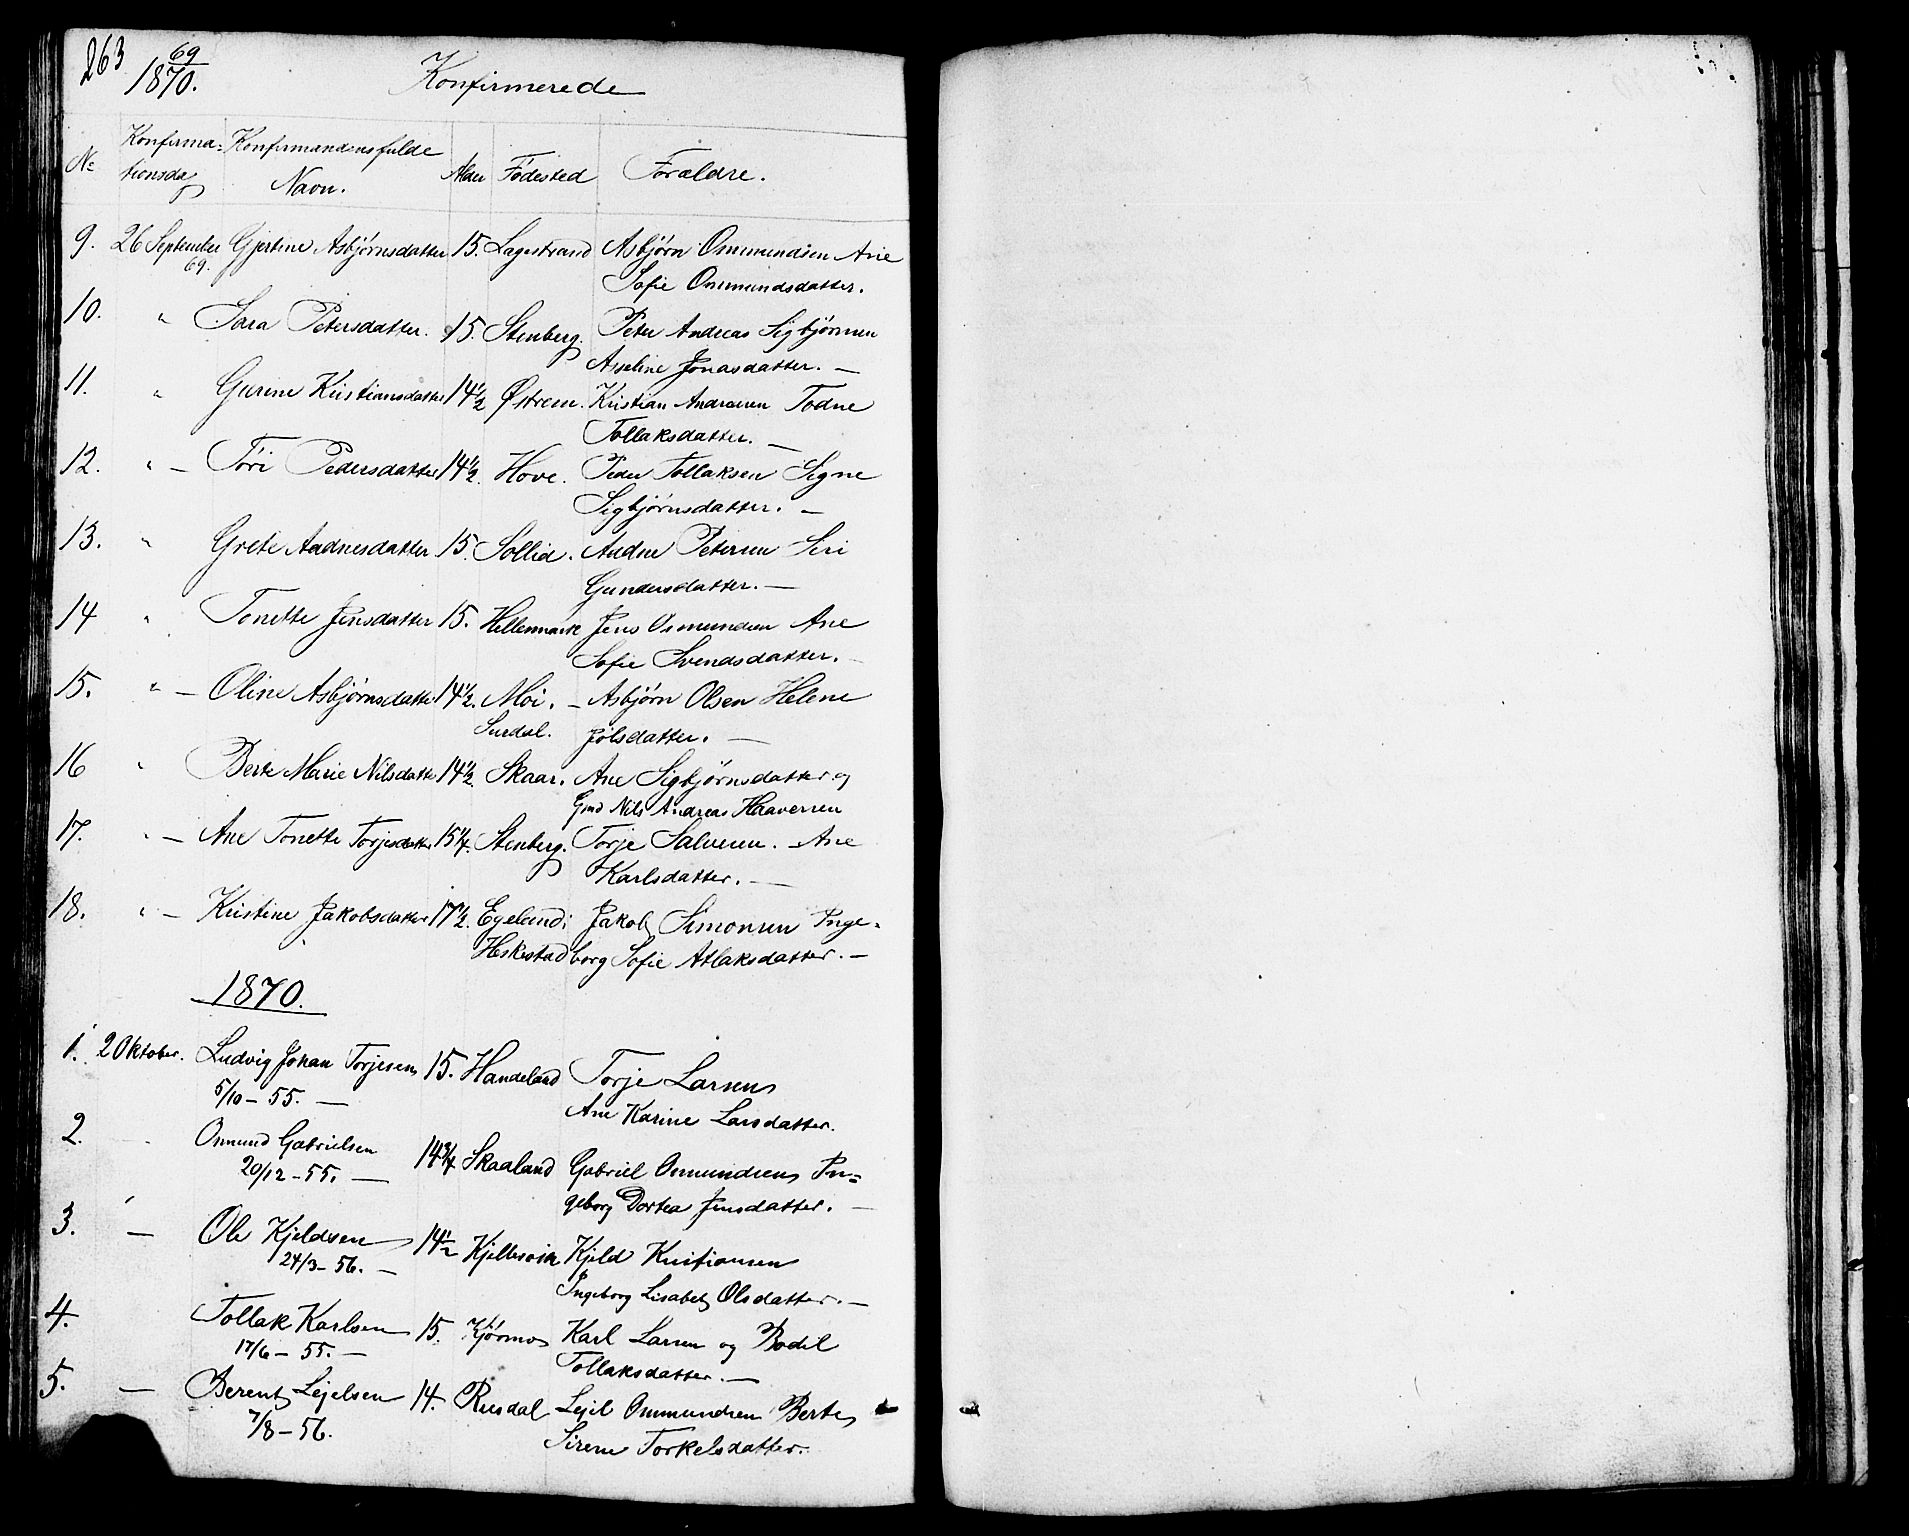 263
1870. 69
Konfirmerede
No Konfirma= Konfirmandens fulde Alder Fødested Forældre.
tionsdag Navn.
9. 26 September Gjertine Asbjørnsdatter 15. Lagestrand Asbjørn Ommundsen Ane
69. Sofie Ommundsdatter.
10. " Sara Petersdatter. 15. Stenberg. Peter Andreas Sigbjørnsen
Asseline Jonasdatter. —
11. " Gurine Kristiansdatter 14½ Østrem. Kristian Andreasen Todne
Tollaksdatter. —
12. " — Töri Pedersdatter 14½. Hove. Peder Tollaksen Signe
Sigbjørnsdatter. —
13. " Grete Aadnesdatter 15. Sollid. Aadne Petersen Siri
Gundersdatter. —
14 " Tonette Jensdatter 15. Hellenmark Jens Osmundsen Ane
Sofie Svendsdatter. —
15. " — Oline Asbjørnsdatter 14½. Moi. — Asbjørn Olsen Helene
Surdal. Jølsdatter. —
16 " Berte Marie Nilsdatter 14½. Skaar. Ane Sigbjørnsdatter og
Gmd Nils Andreas Haaversen
17. " — Ane Tonette Torjesdatter 15¼. Stenberg. Torje Salvesen. Ane
Karlsdatter. —
18. " — Kristine Jakobsdatter 17½. Egeland i Jakob Simonsen Inge-
Heskestad borg Sofie Atlaksdatter. —
1870.
1. 2 Oktober. Ludvig Johan Torjesen 15. Handeland Torje Larsen
5/10 — 55. — Ane Karine Larsdatter.
2. " Omund Gabrielsen 14¾ Skaaland Gabriel Ommundsen In=
20/12 — 55. — geborg Dortea Jensdatter. —
3. — Ole Kjeldsen 14½ Kjellesvik Kjeld Kristiansen
24/3 — 56. — Ingeborg Lisabet Olsdatter. —
4. Tollak Karlsen 15. Kjørmo Karl Larsen og Bodil
17/6 — 55. — Tollaksdatter. —
5. — Berent Lejelsen 14. Rusdal Lejel Ommundsen Berte
7/8 — 56. Sirene Torkelsdatter.